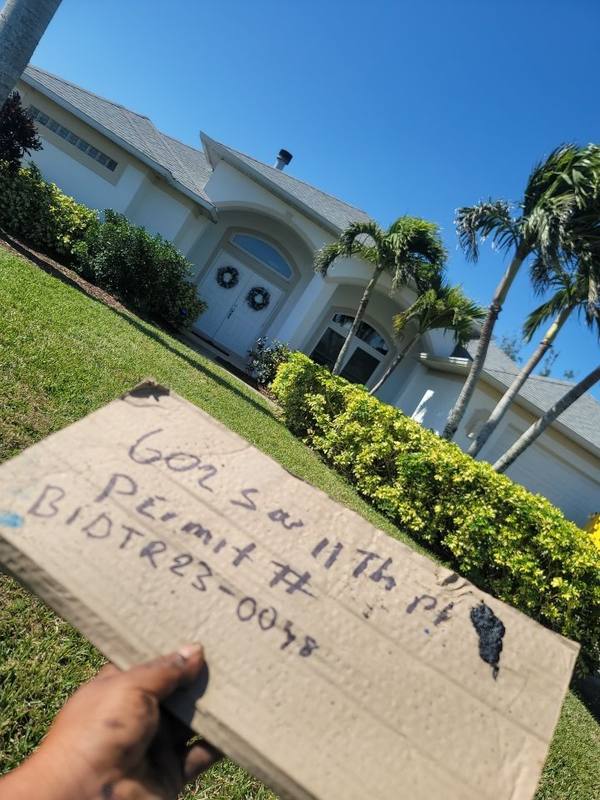 602 SW 11 Th Pl
Permit #
BIDTR23-0048